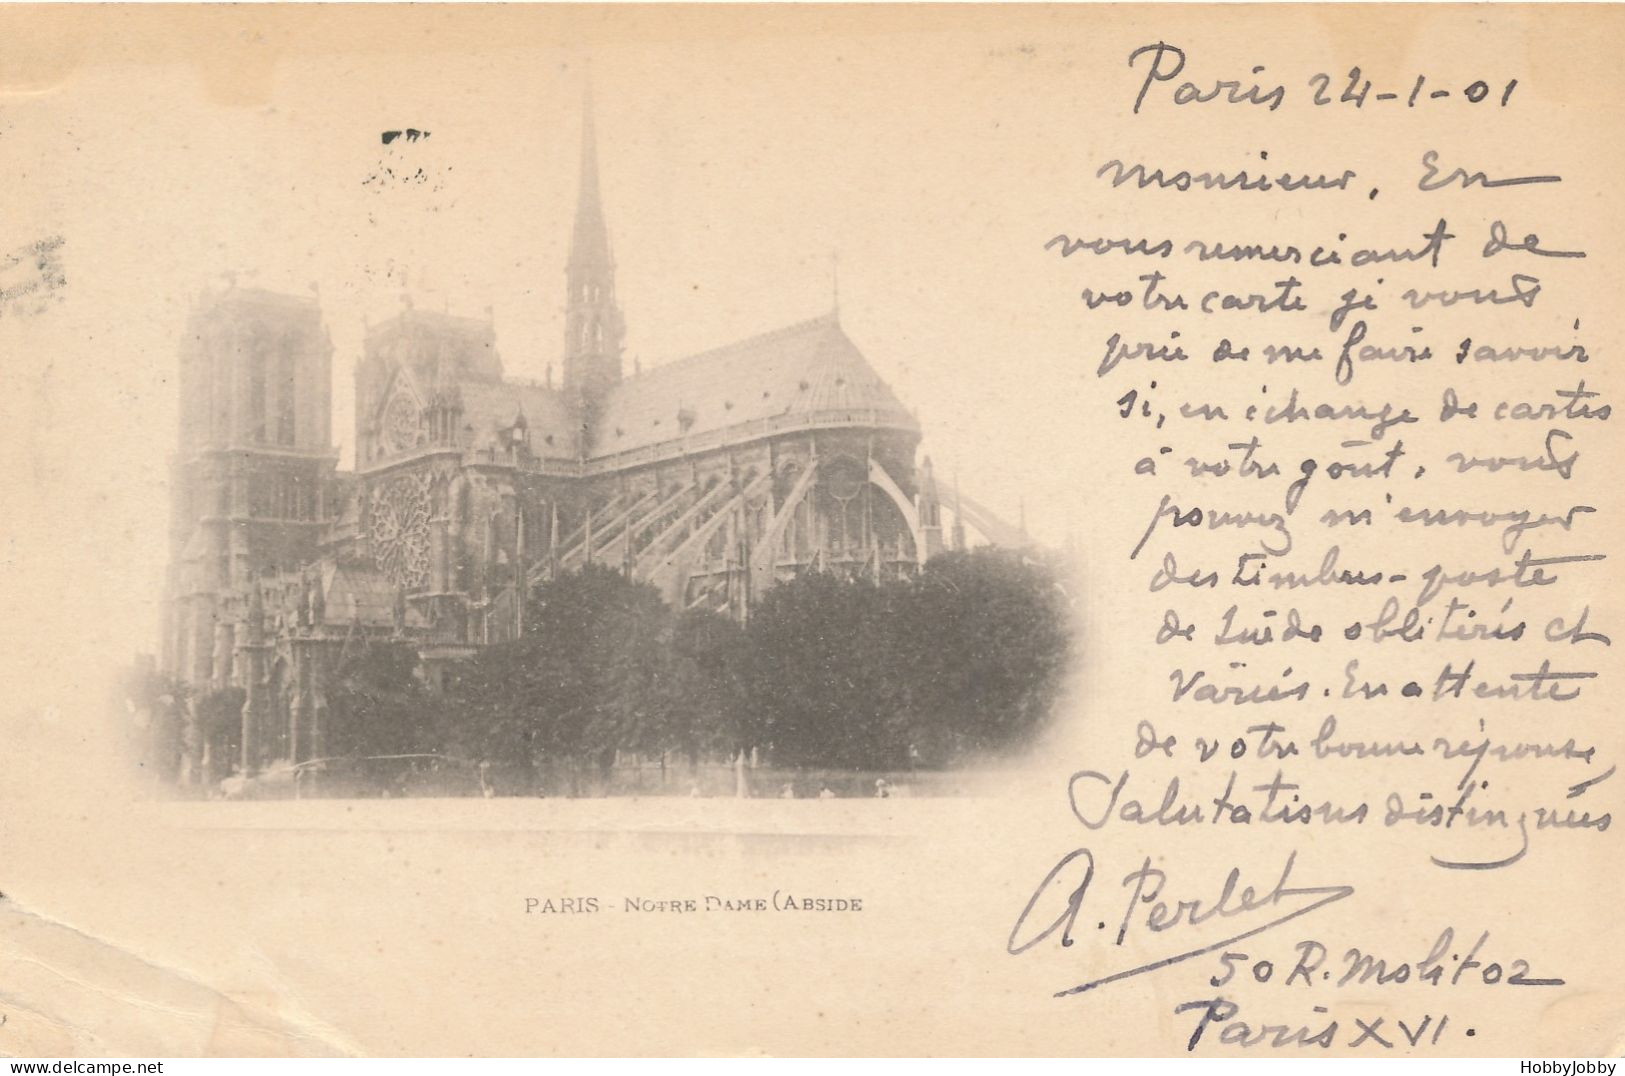 Paris 24-1-01
Monsieur, En
vous remerciant de
votre carte je vous
prie de me faire savoir
si, en échange de cartes
à votre goût, vous
pouvez m'envoyer
des timbres-poste
de Suède oblitérés et
variés. En attente
de votre bonne réponse
Salutations distinguées
A. Perlet
50 R. Molitor
Paris XVI.
PARIS - NOTRE DAME (ABSIDE
HobbyJobby